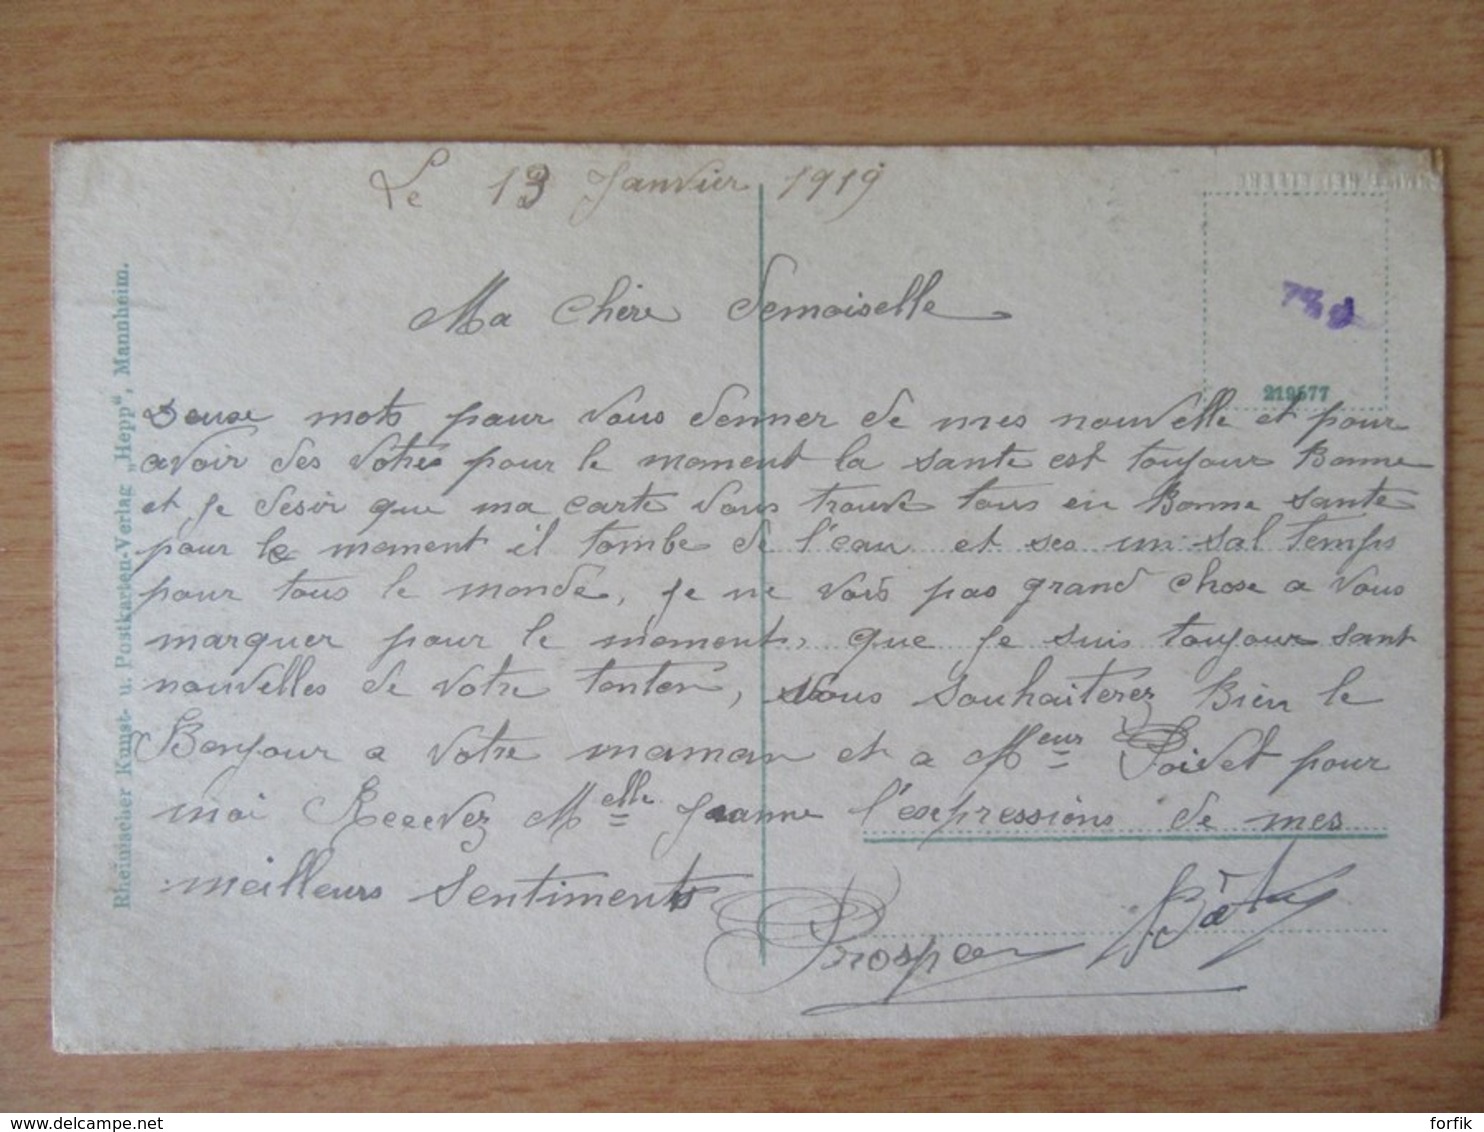 Le 13 Janvier 1919
Ma Chère Demoiselle
219577
Deuse mots pour vous donner de mes nouvelle et pour
avoir des votres pour le moment la sante est toujour Bonne
et je desir que ma carte vous trouve tous en Bonne sante
pour le moment il tombe de l'eau et ses un sal temps
pour tous le monde, je ne vois pas grand chose a vous
marquer pour le moment, que je suis toujour sant
nouvelles de votre tonton, vous souhaiterez Bien le
Bonjour a votre maman et a Meur Poivet pour
moi Recevez Melle Jeanne l'expressions de mes
meilleurs sentiments
Prosper
Rheinischer Kunst- u. Postkarten-Verlag „Hepp“, Mannheim.
forfik
delcampe.net